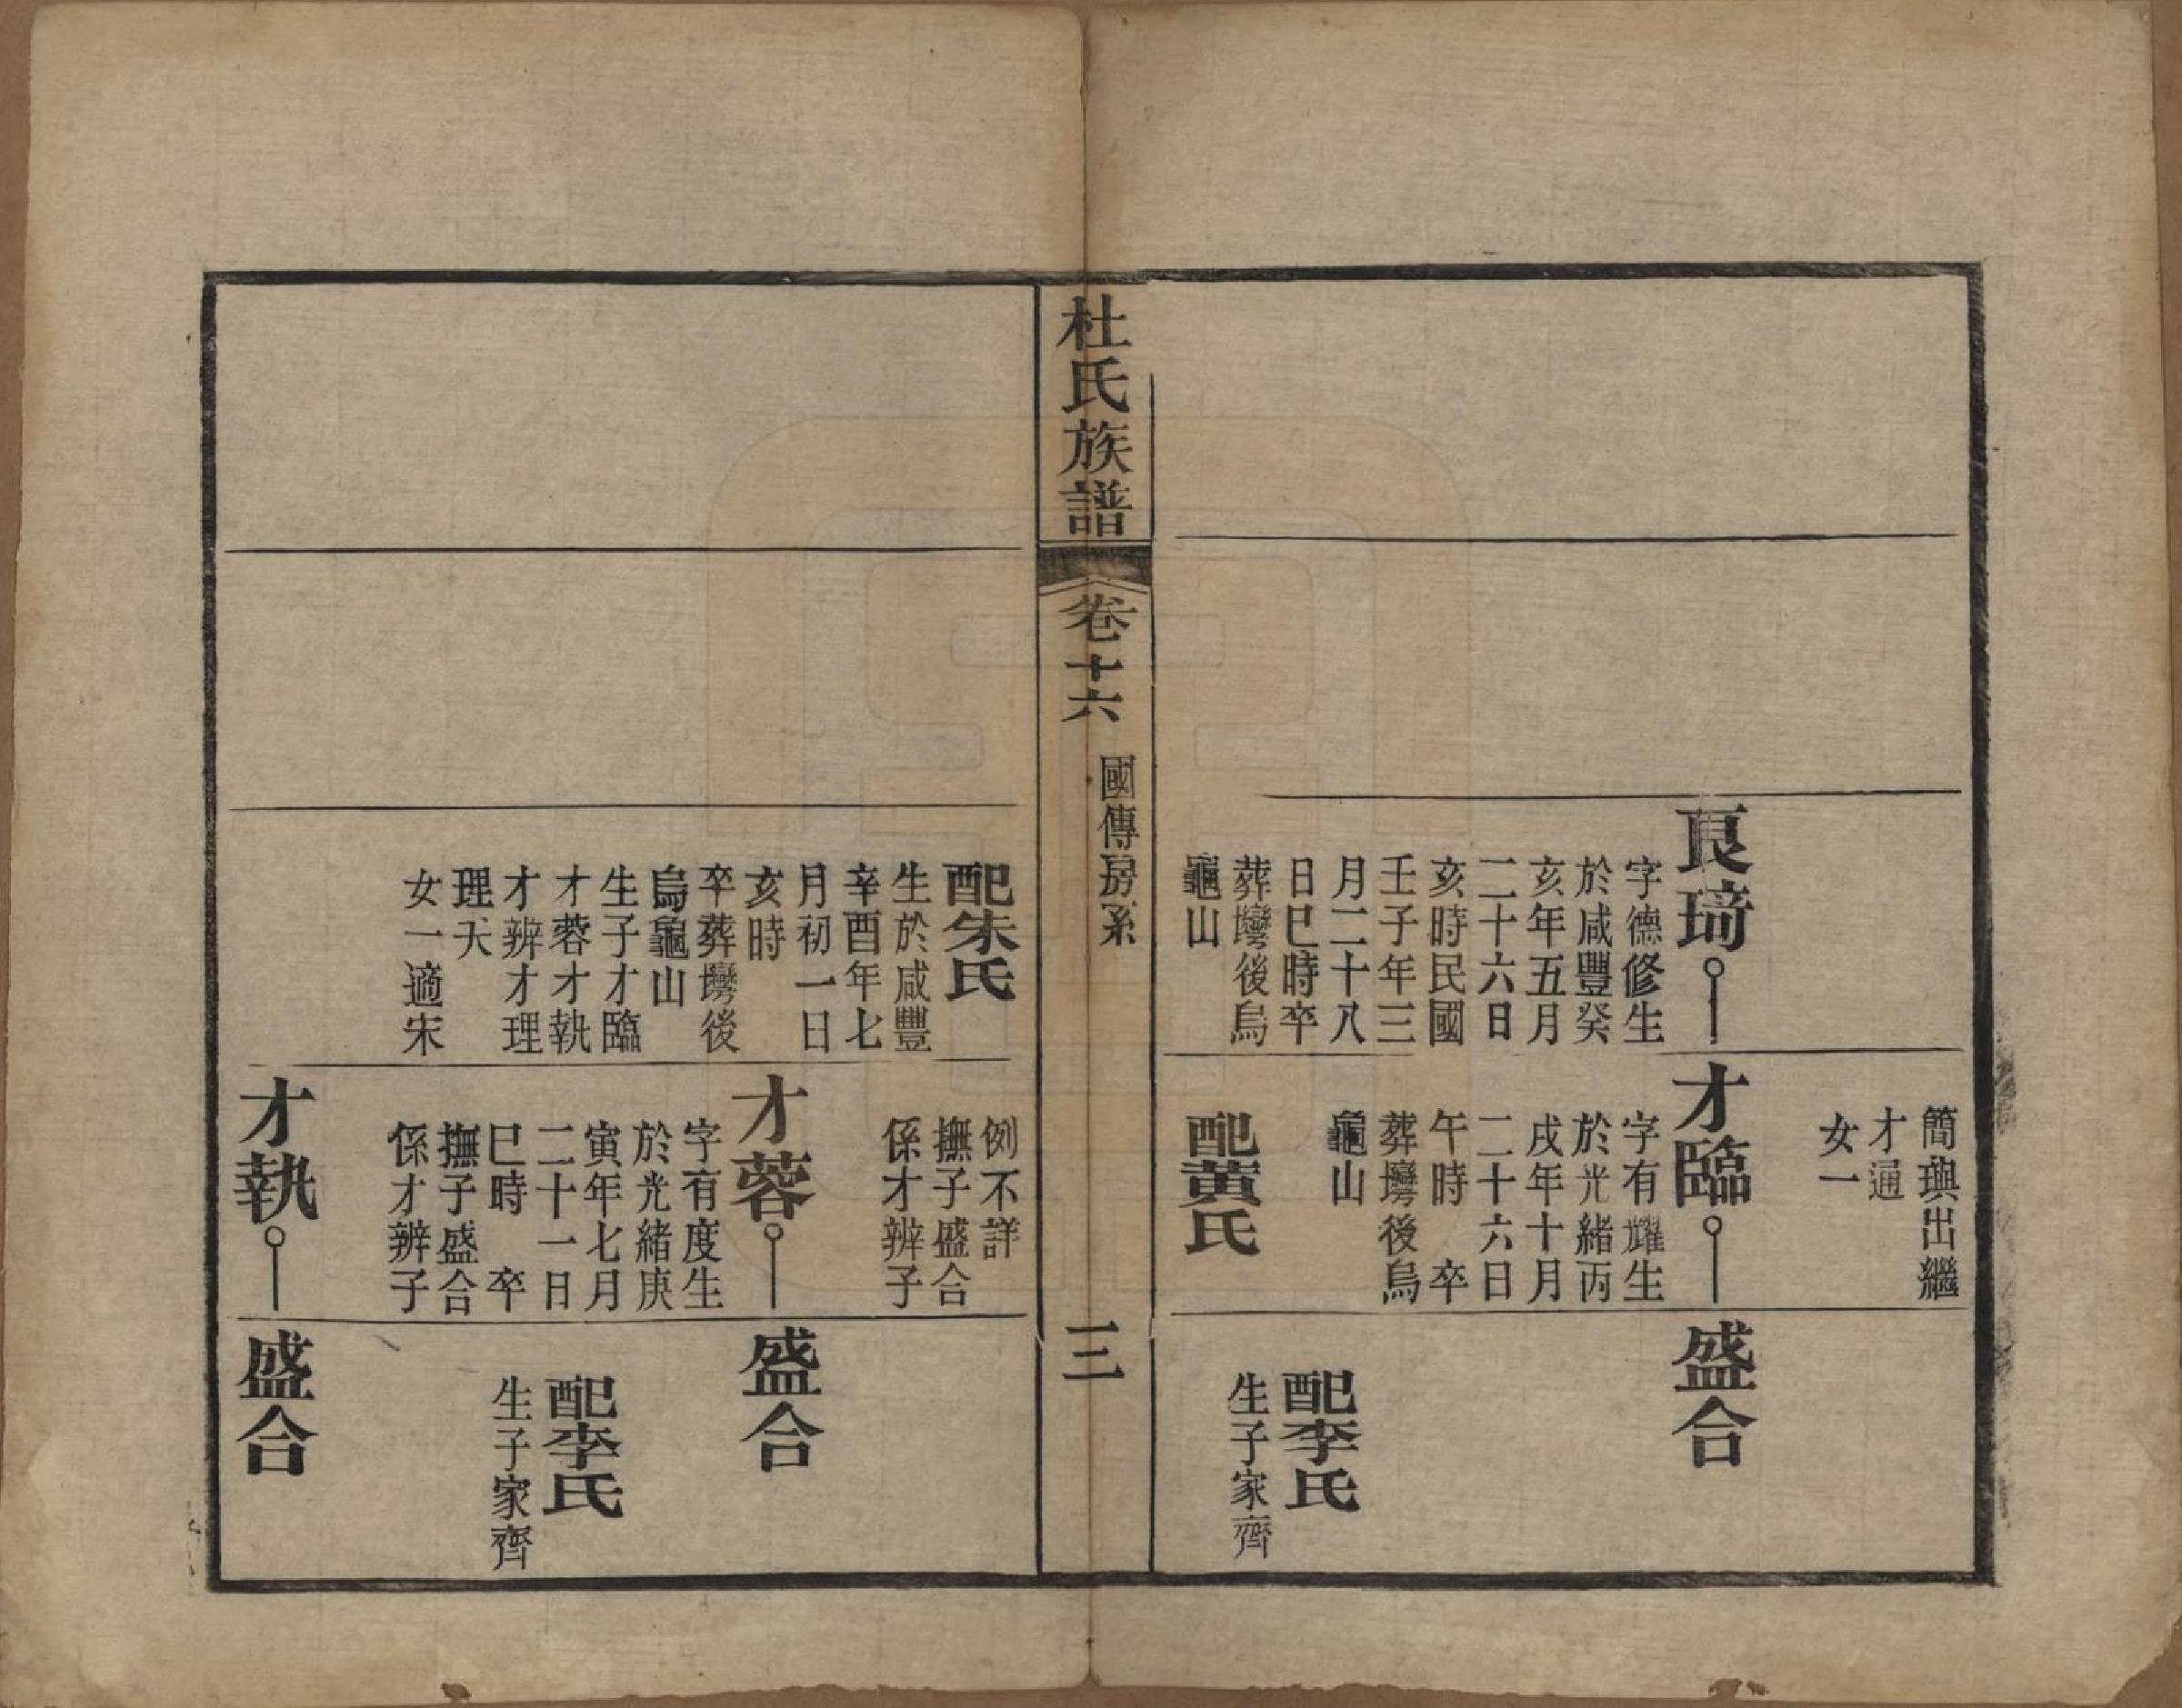 簡璵出繼
才通
女一
良琦
字德修生
於咸豐癸
亥年五月
二十六日
亥時民國
壬子年三
月二十八
日巳時卒
葬壪後烏
龜山
才臨
字有耀生
於光緒丙
戌年十月
二十六日
午時　卒
葬壪後烏
龜山
配黄氏
盛合
配李氏
生子家齊
杜氏族譜
卷十六
國傳房系
三
配朱氏
生於咸豐
辛酉年七
月初一日
亥時
卒葬壪後
烏龜山
生子才臨
才蓉才執
才辨才理
理夭
女一適宋
例不詳
撫子盛合
係才辨子
才蓉
字有度生
於光緒庚
寅年七月
二十一日
巳時　卒
撫子盛合
係才辨子
才執
盛合
配李氏
生子家齊
盛合